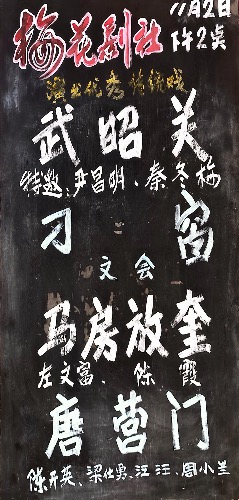 梅花剧社
11月2日
下午2点
演出优秀传统戏
武昭关
特邀:尹昌明、秦冬梅
刁窗
文会
马房放奎
左文富、陈霞
唐营门
陈开英、梁仕勇、汪汪、周小兰